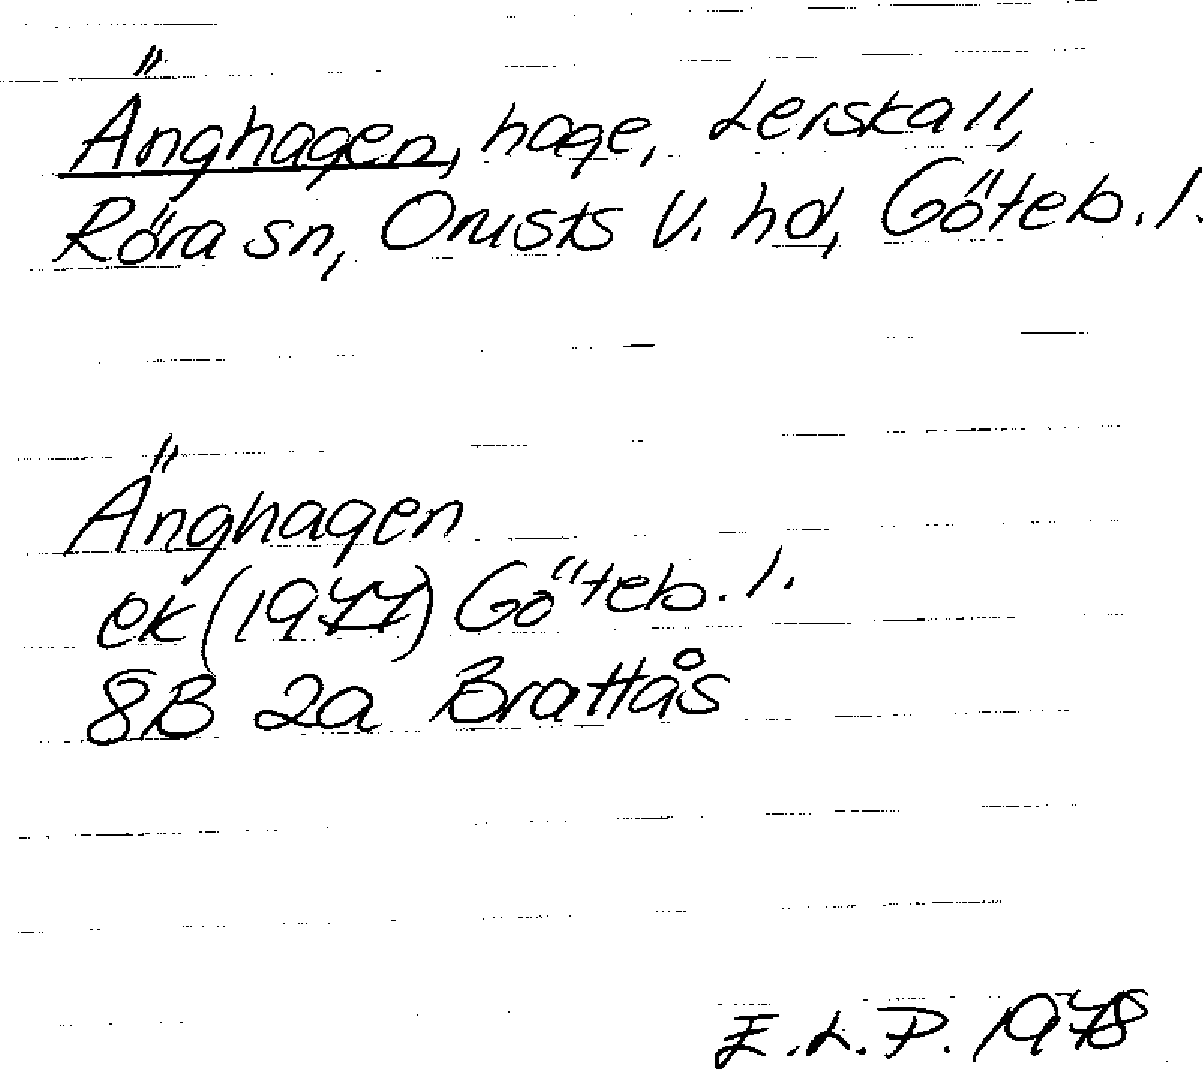 Änghagen, hage, Lerskall,
Röra sn, Orusts V. hd, Göteb. l.
Änghagen
ek (1977) Göteb. l.
8B 2a Brattås
E.L.P. 1978